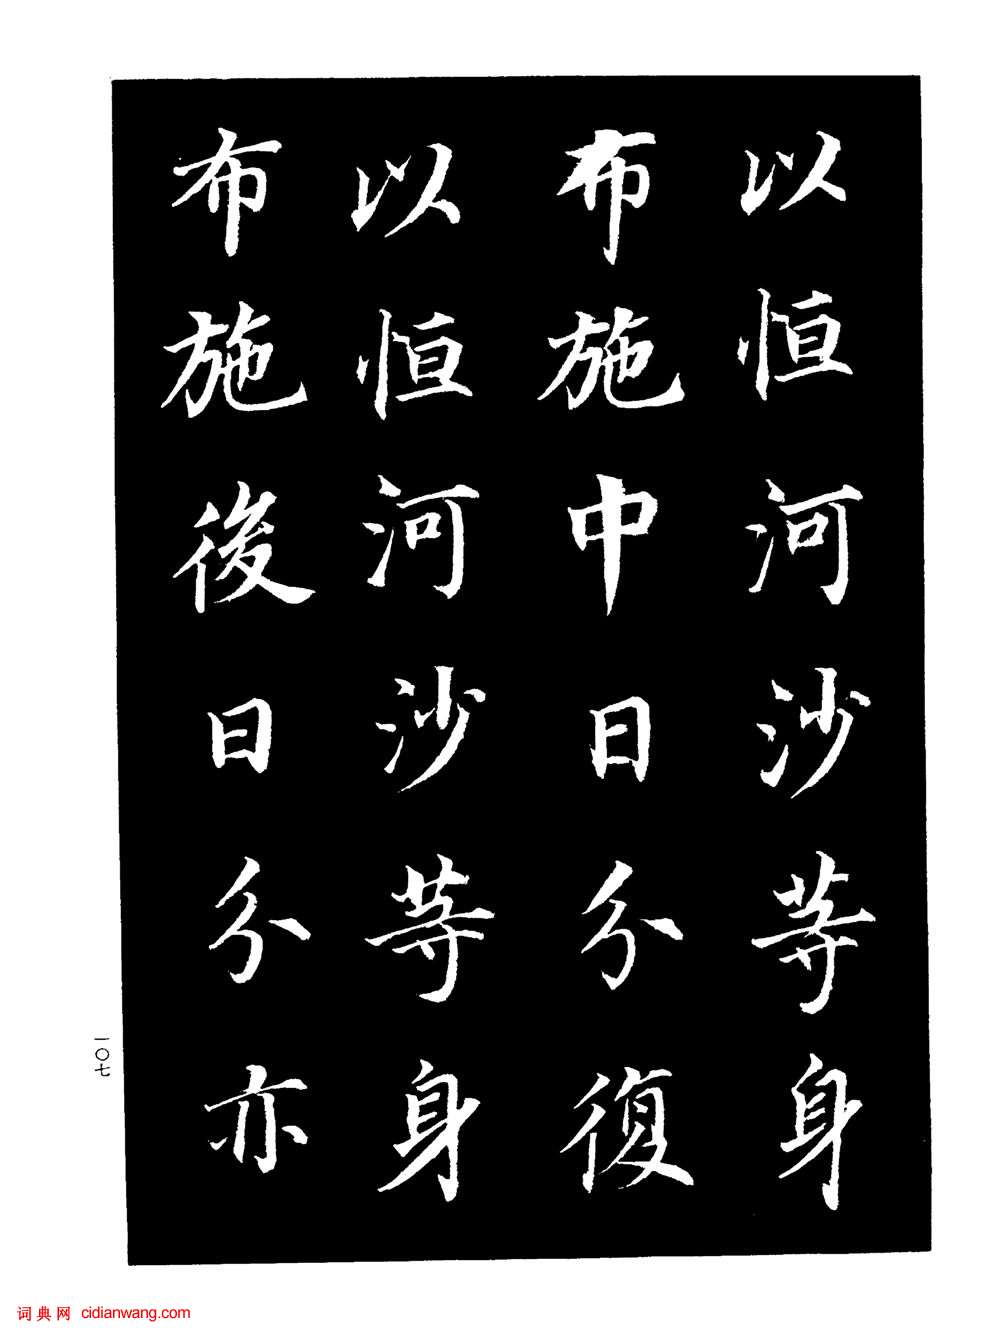 以恒河沙等身
布施中日分復
以恒河沙等身
布施後日分亦
一〇七
词典网 cidianwang.com